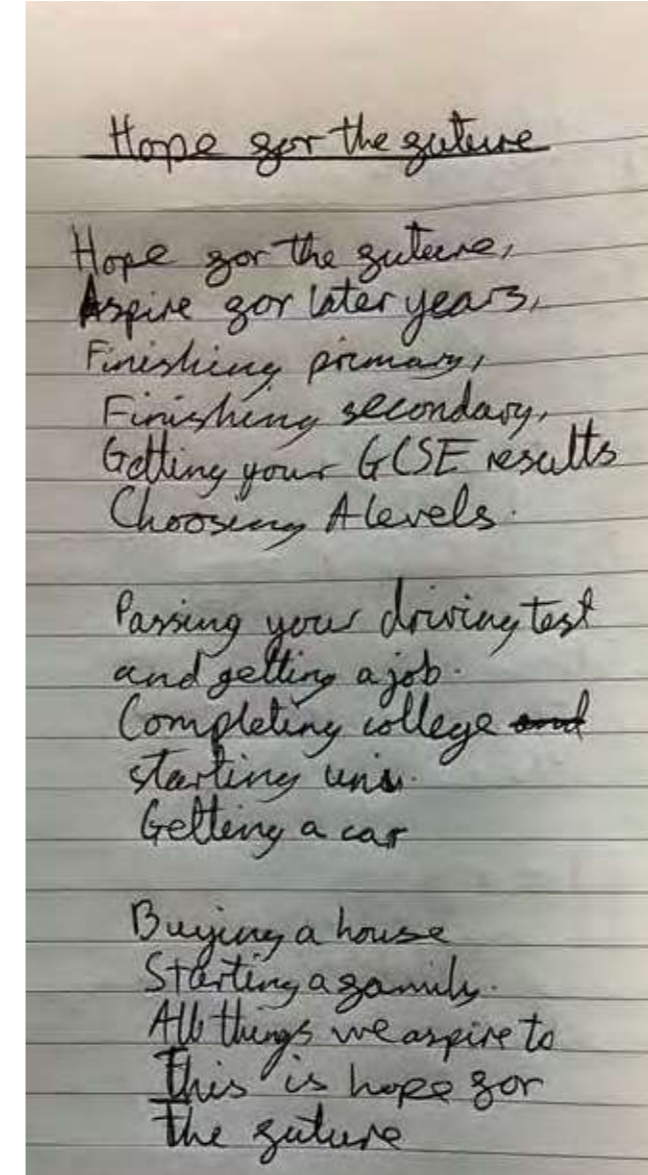 Hope for the future
Hope for the future,
Aspire for later years,
Finishing primary,
Finishing secondary,
Getting your GCSE results
Choosing A levels.
Passing your driving test
and getting a job.
Completing college and
starting uni.
Getting a car
Buying a house
Starting a family.
All things we aspire to
This is hope for
the future